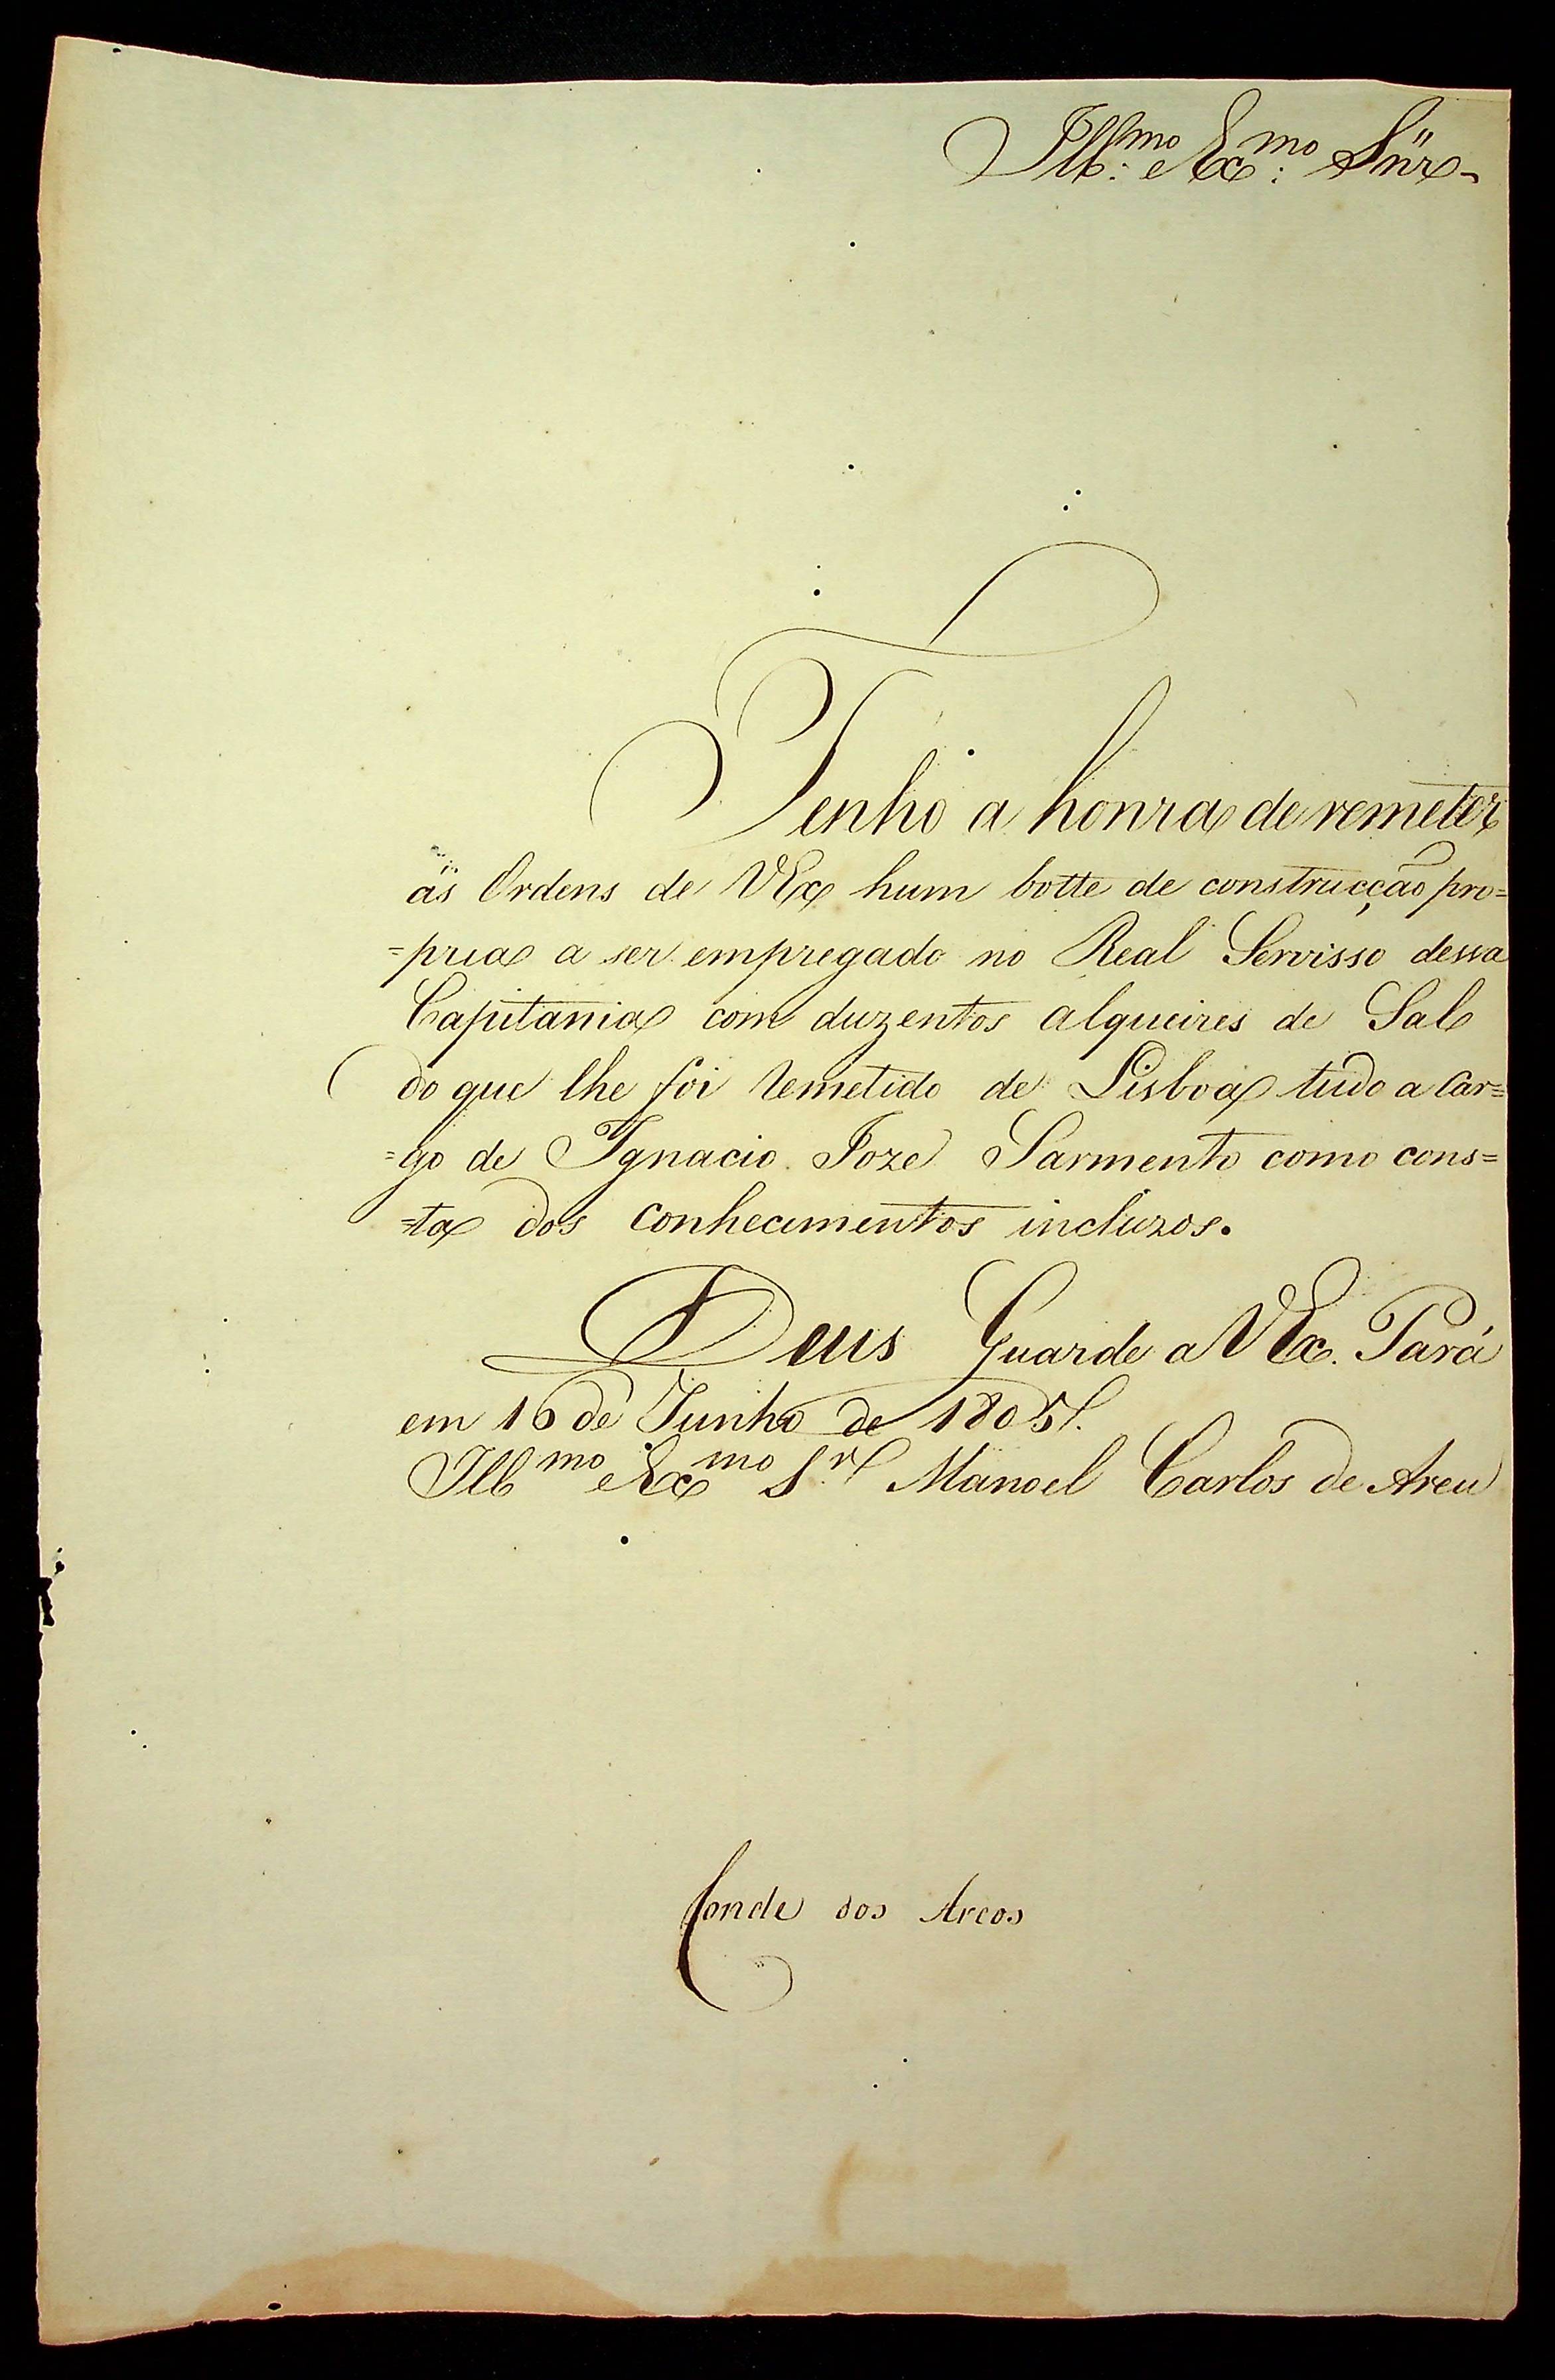 Ill.mo e Ex.mo Snr.
Tenho a honra de remeter
às Ordens de VEx hum botte de construcção pro=
=pria a ser empregado no Real Servisso dessa
Capitania com duzentos alqueires de Sal
do que lhe foi remetido de Lisboa tudo a Car=
=go de Ignacio Joze Sarmento como cons=
=ta dos conhecimentos incluzos.
Deus Guarde a VEx. Pará
em 16 de Junho de 1805.
Ill mo e Ex mo Sr. Manoel Carlos de Abreu
Conde dos Arcos